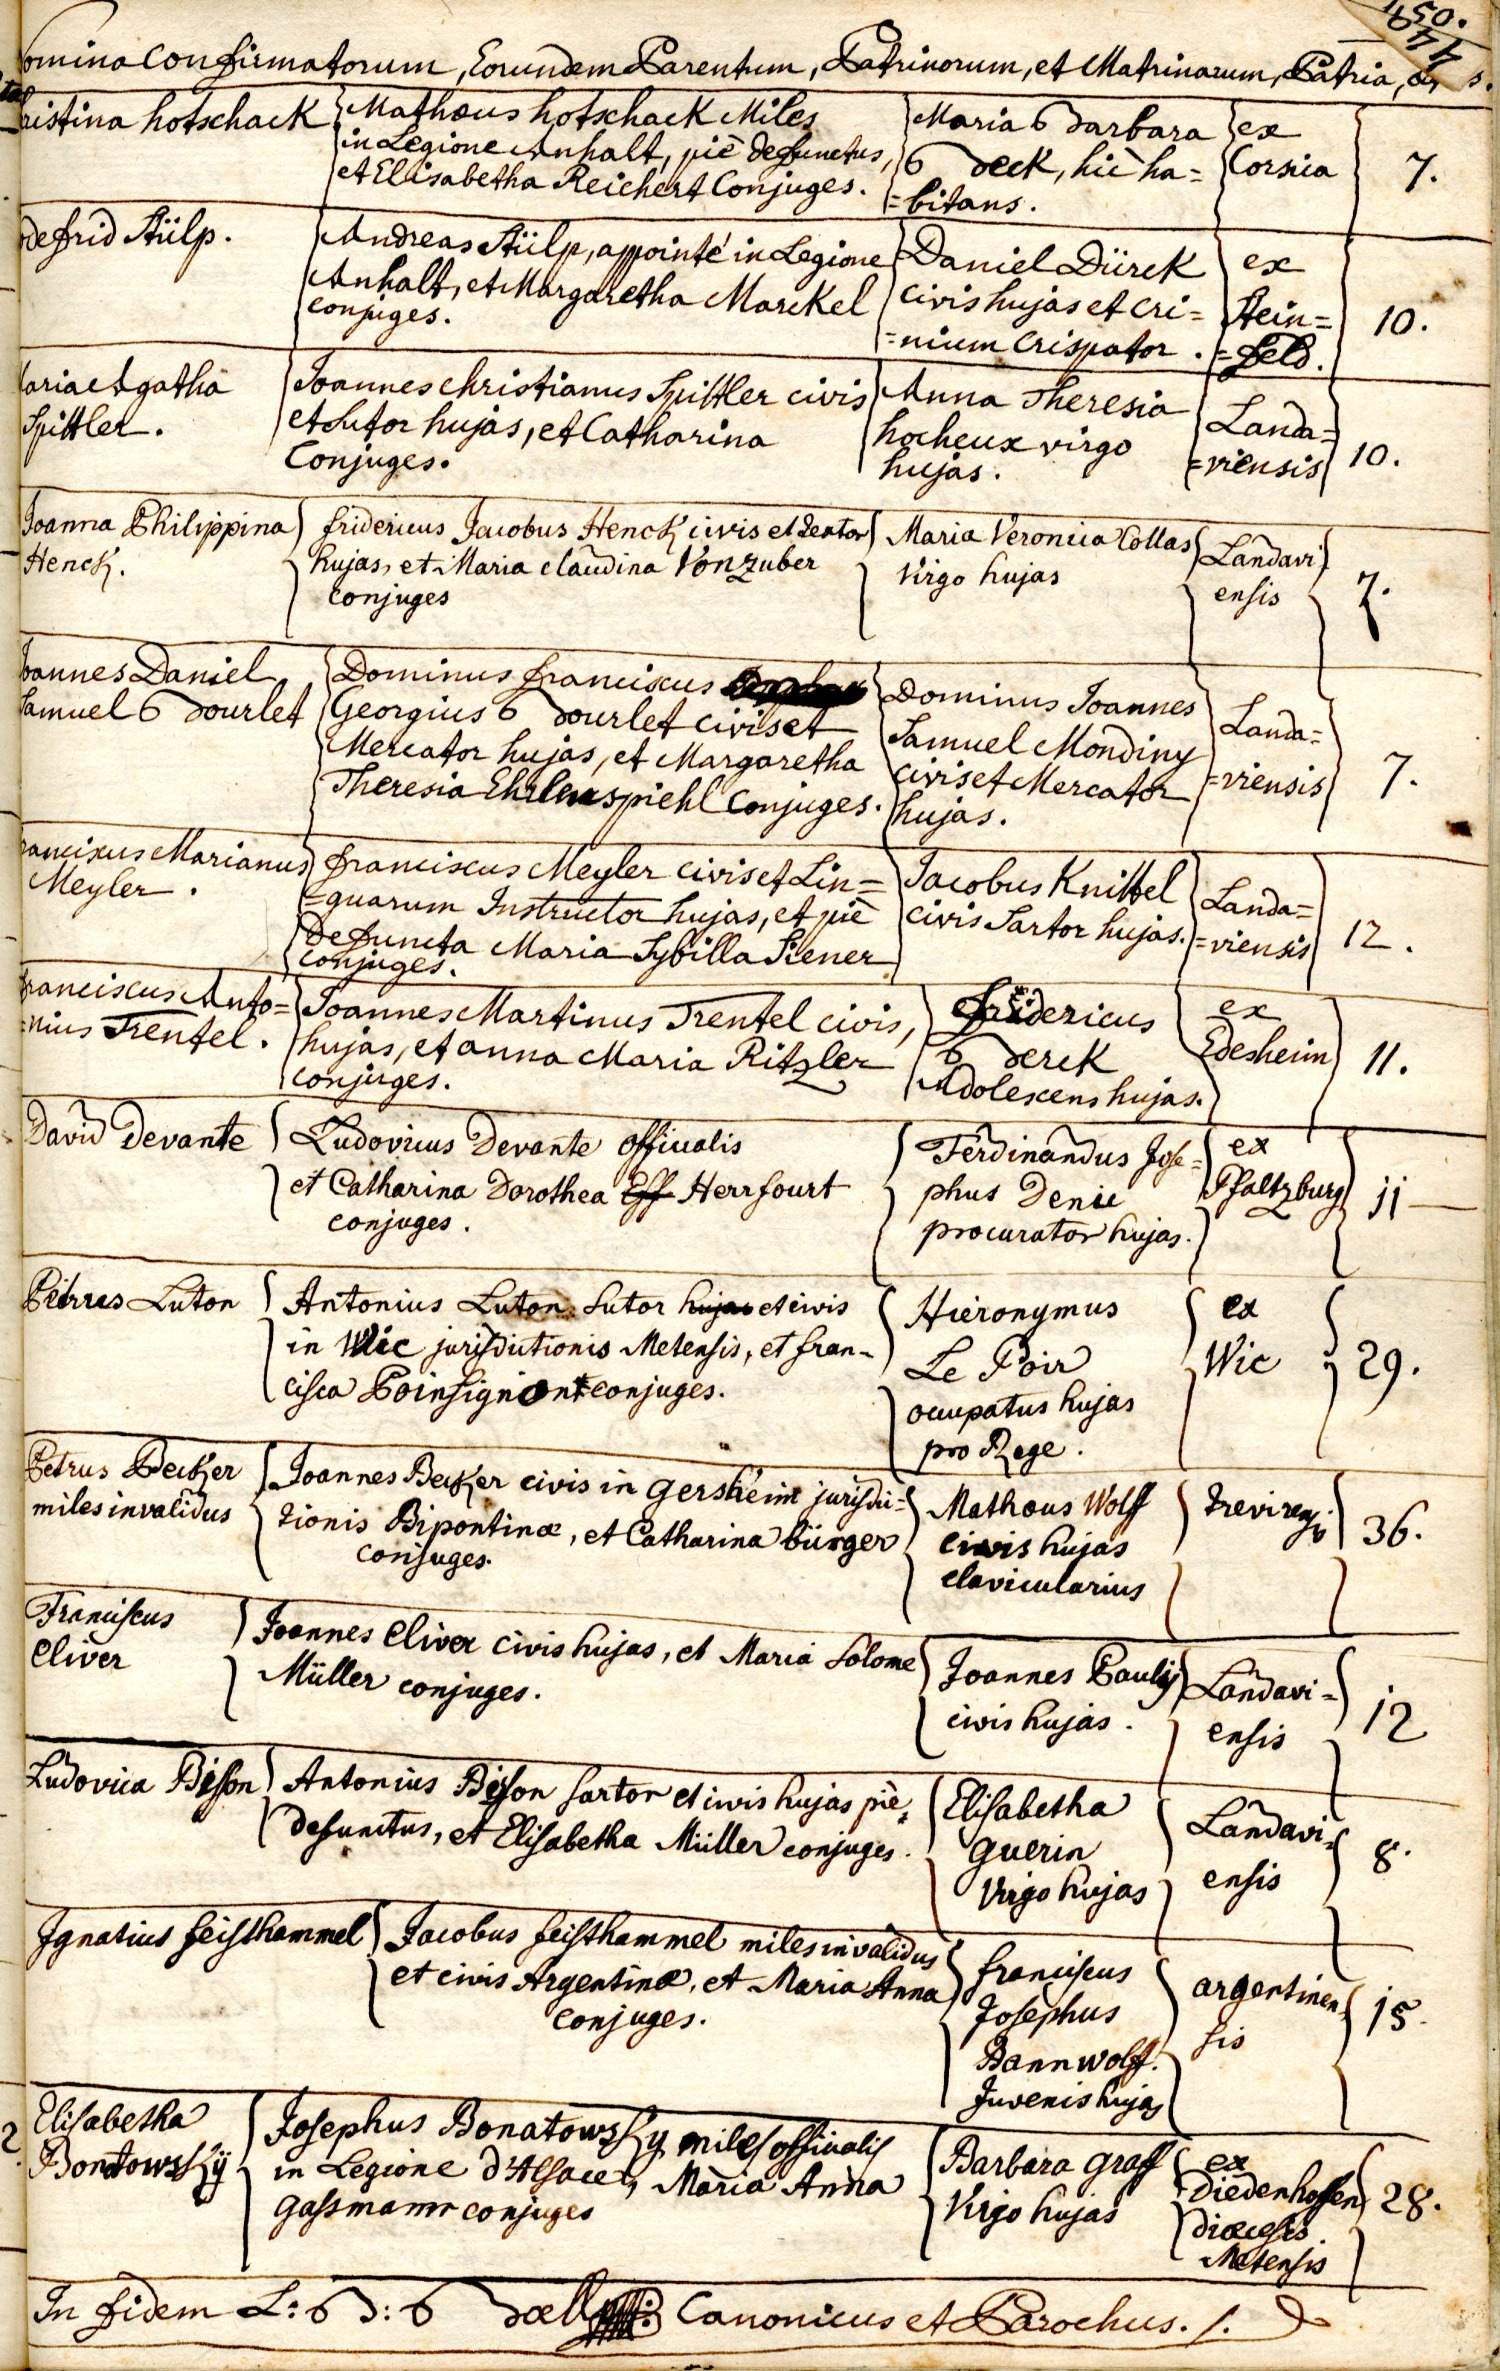 omina Confirmatorum, Eorundem Parentum, Patrinorum, et Matrinarum, Patria,
ristina hotschack
Mathæus hotschack Miles
in Legione Anhalt, piè defunctus,
et Elisabetha Reichert Conjuges.
Maria Barbara
Beck, hic ha=
=bitans.
ex
Corsica
7.
odefrid Stülp.
Andreas Stülp, appointé in Legione
Anhalt, et Margaretha Marckel
conjuges.
Daniel Dürck
civis hujas et cri=
=nium Crispator.
ex
Stein=
=feld.
10.
Maria Agatha
Spittler.
Joannes Christianus Spittler civis
et Sutor hujas, et Catharina
Conjuges.
Anna Theresia
hocheux virgo
hujas.
Landa=
=viensis
10.
Joanna Philippina
Henck.
fridericus Jacobus Henck civis et
hujas, et Maria claudina Vonzuber
conjuges
Maria Veronica Collas
Virgo hujas
Landavi
ensis
7.
Joannes Daniel
Samuel Bourlet
Dominus franciscus
Georgius Bourlet civis et
Mercator hujas, et Margaretha
Theresia Ehrlenspiehl Conjuges.
Dominus Joannes
Samuel Mondiny
civis et Mercator
hujas.
Landa=
=viensis
7.
ranciscus Marianus
Meyler.
franciscus Meyler civis et Lin=
=guarum Instructor hujas, et piè
Defuncta Maria Sybilla Siener
conjuges.
Jacobus Knittel
civis Sartor hujas.
Landa=
=viensis
12.
franciscus Anto=
=nius Trentel.
Joannes Martinus Trentel civis,
hujas, et anna Maria Ritzler
conjuges.
fridericus
Berck
Adolescens hujas.
ex
Edesheim
11.
David Devante
Ludovicus Devante officialis
et Catharina Dorothea Eff Herrfourt
conjuges.
Ferdinandus Jose=
phus Denic
procurator hujas.
ex
Pfaltzburg
11
Petrus Luton
Antonius Luton Sutor hujas et civis
in Wic jurisdictionis Metensis, et fran=
cisca Poinsignon conjuges.
Hieronymus
Le Poir
occupatus hujas
pro Rege.
ex
Wic
29.
Petrus Becker
miles invalidus
Joannes Becker civis in Gersheim jurisdic=
tionis Bipontinæ, et Catharina bürger
conjuges.
Mathæus Wolff
civis hujas
clavicularius
Trevirensis
36.
Franciscus
Cliver
Joannes Cliver civis hujas, et Maria Solome
Müller conjuges.
Joannes Paulÿ
civis hujas.
Landavi=
ensis
12
Ludovica Bisson
Antonius Bisson sartor et civis hujas piè
defunctus, et Elisabetha Müller conjuges.
Elisabetha
Guerin
Virgo hujas
Landavi=
ensis
8.
Ignatius feisthammel
Jacobus feisthammel miles invalidus
et civis Argentinæ, et Maria Anna
conjuges.
franciscus
Josephus
Bannwolff.
Juvenis hujas
argentinen=
sis
15.
Elisabetha
Bonatowskÿ
Josephus Bonatowsky miles officialis
in Legione d'Alsace, Maria Anna
gassmann conjuges
Barbara graff
Virgo hujas
ex
Diedenhoffen
diœcesis
Metensis
28.
In fidem L: B: Bæll Canonicus et Parochus.